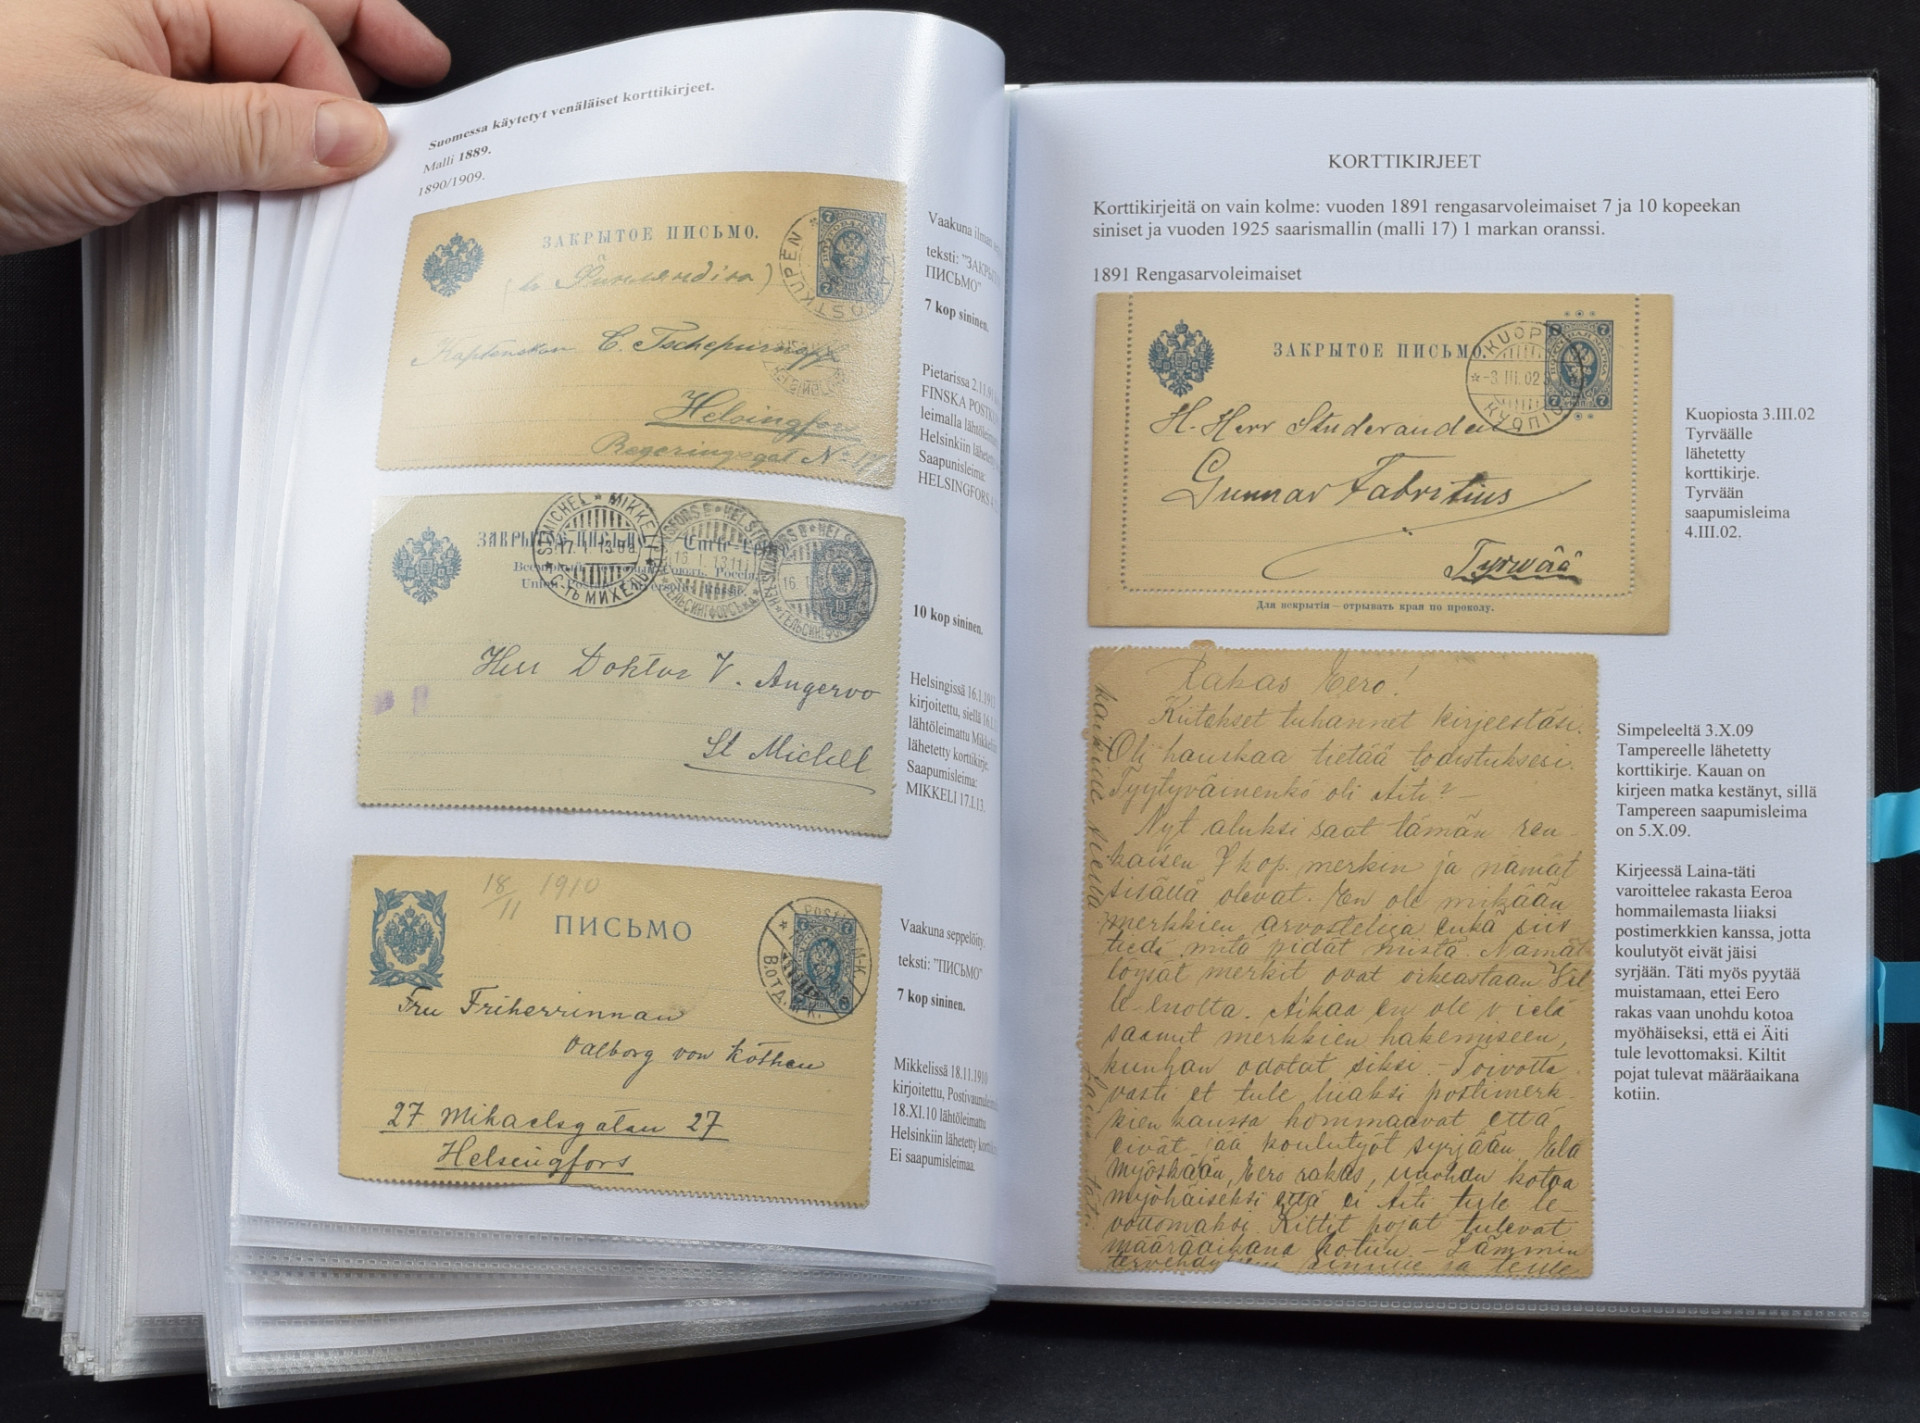 Suomessa käytetyt venäläiset korttikirjeet.
Malli 1889.
1890/1909.
ЗАКРЫТОЕ ПИСЬМО.
7
7
7
POSTKUPEN
Kaptenskan C. Tschepurnoff
Helsingfors
Regeringsgat No 17
Vaakuna ilman
teksti:
ПИСЬМО"
7 kop sininen.
Pietarissa 2.11.
FINSKA
leimalla
Helsinkiin
Saapumisleima:
HELSINGFORS
ST MICHEL * MIKKELI
17.1.13
С-ТЬ МИХЕЛЬ
HELSINGFORS
16.1.13
Herr Doktor V. Angervo
St Michel
10 kop sininen.
Helsingissä 16.1.
kirjoitettu, siellä
lähtöleimattu
lähetetty korttikirje.
Saapumisleima:
MIKKELI 17.I.13.
18/11 1910
ПИСЬМО
7
7
Fru Friherrinnan
Valborg von Köthen
27 Mikaelsgatan 27
Helsingfors
Vaakuna seppelöity.
teksti: "ПИСЬМО"
7 kop sininen.
Mikkelissä 18.11.1910
kirjoitettu,
18.XI.10 lähtöleimattu
Helsinkiin lähetetty
Ei saapumisleimaa.
KORTTIKIRJEET
Korttikirjeitä on vain kolme: vuoden 1891 rengasarvoleimaiset 7 ja 10 kopeekan
siniset ja vuoden 1925 saarismallin (malli 17) 1 markan oranssi.
1891 Rengasarvoleimaiset
ЗАКРЫТОЕ ПИСЬМО.
KUOPIO
-3.III.02
КУОПІО
7
7
7
7
H. Herr Studeranden
Gunnar Fabritius
Tyrwää
Для вскрытія – отрывать края по проколу.
Kuopiosta 3.III.02
Tyrväälle
lähetetty
korttikirje.
Tyrvään
saapumisleima
4.III.02.
Rakas Eero!
Kiitokset tuhannet kirjeestäsi.
Oli hauskaa tietää todistuksesi.
Tyytyväinenkö oli Äiti? –
Nyt aluksi saat tämän ren-
kaisen 7 kop. merkin ja nämät
sisällä olevat. En ole mikään
merkkien arvostelija enkä siis
tiedä mitä pidät niistä. Nämät
löysät merkit ovat oikeastaan Vil
le-enolta. Aikaa en ole vielä
saanut merkkien hakemiseen,
kunhan odotat siksi. – Toivotta
vasti et tule liiaksi postimerk-
kien kanssa hommaavat että
eivät jää koulutyöt syrjään. Älä
myöskään, Eero rakas, unohdu kotoa
myöhäiseksi että ei Äiti tule le-
vottomaksi. Kiltit pojat tulevat
määräaikana kotiin. – Lämmin
Simpeleeltä 3.X.09
Tampereelle lähetetty
korttikirje. Kauan on
kirjeen matka kestänyt, sillä
Tampereen saapumisleima
on 5.X.09.
Kirjeessä Laina-täti
varoittelee rakasta Eeroa
hommailemasta liiaksi
postimerkkien kanssa, jotta
koulutyöt eivät jäisi
syrjään. Täti myös pyytää
muistamaan, ettei Eero
rakas vaan unohdu kotoa
myöhäiseksi, että ei Äiti
tule levottomaksi. Kiltit
pojat tulevat määräaikana
kotiin.